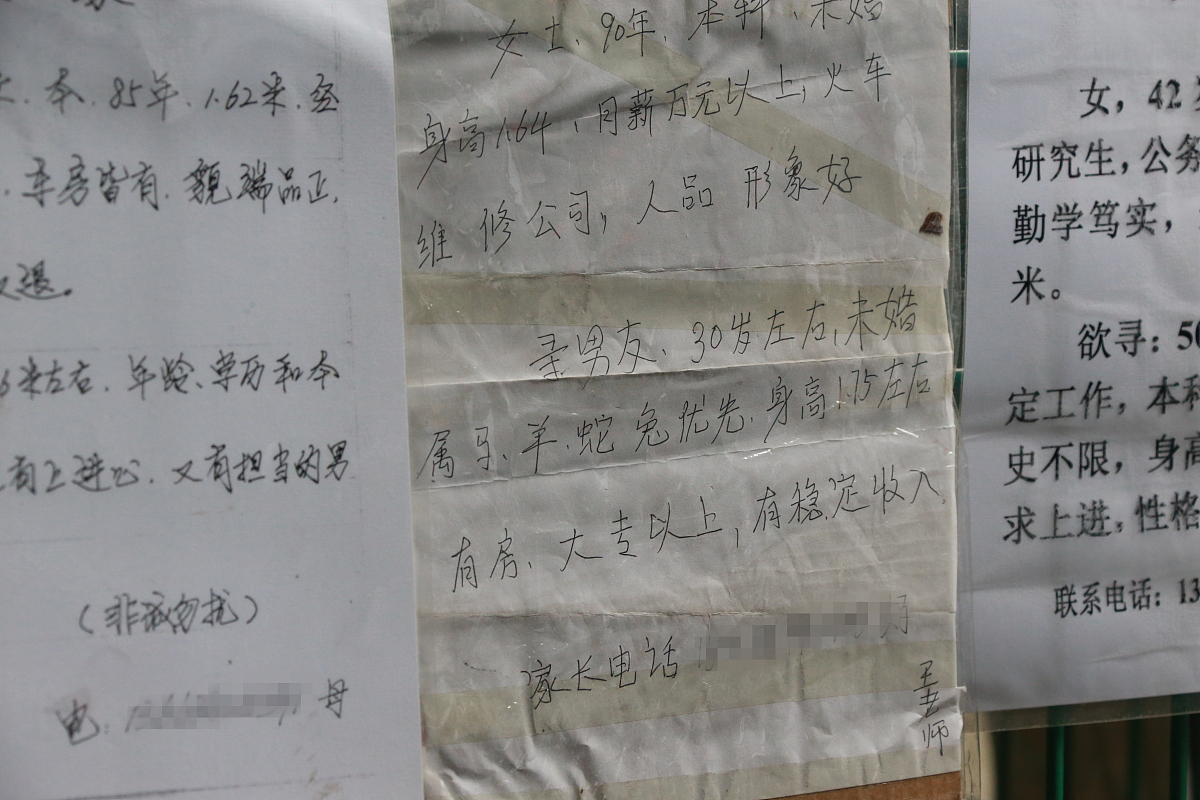 本.85年.1.62米.经
.车房皆有.貌端品正.
退。
米左右.年龄、学历和本
有上进心.又有担当的男
(非诚勿扰)
电: 母
女士、90年、本科、未婚
身高1.64,月薪万元以上,火车
维修公司,人品 形象好
寻男友、30岁左右,未婚
属马、羊.蛇兔优先.身高1.75左右
有房、大专以上,有稳定收入.
家长电话
老师
女,42
研究生,公务
勤学笃实,
米。
欲寻:50
定工作,本科
史不限,身高
求上进。性格
联系电话:13